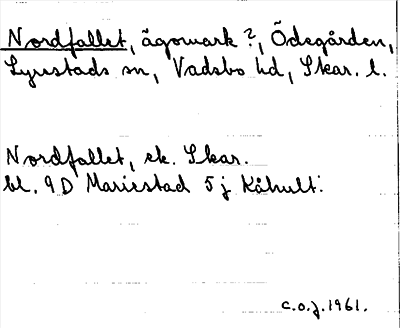 Nordfallet, ägomark ?, Ödegården,
Lyrestads sn, Vadsbo hd, Skar. l.
Nordfallet, ek. Skar.
bl. 9D Mariestad 5 j Kåhult.
C.O.J. 1961.